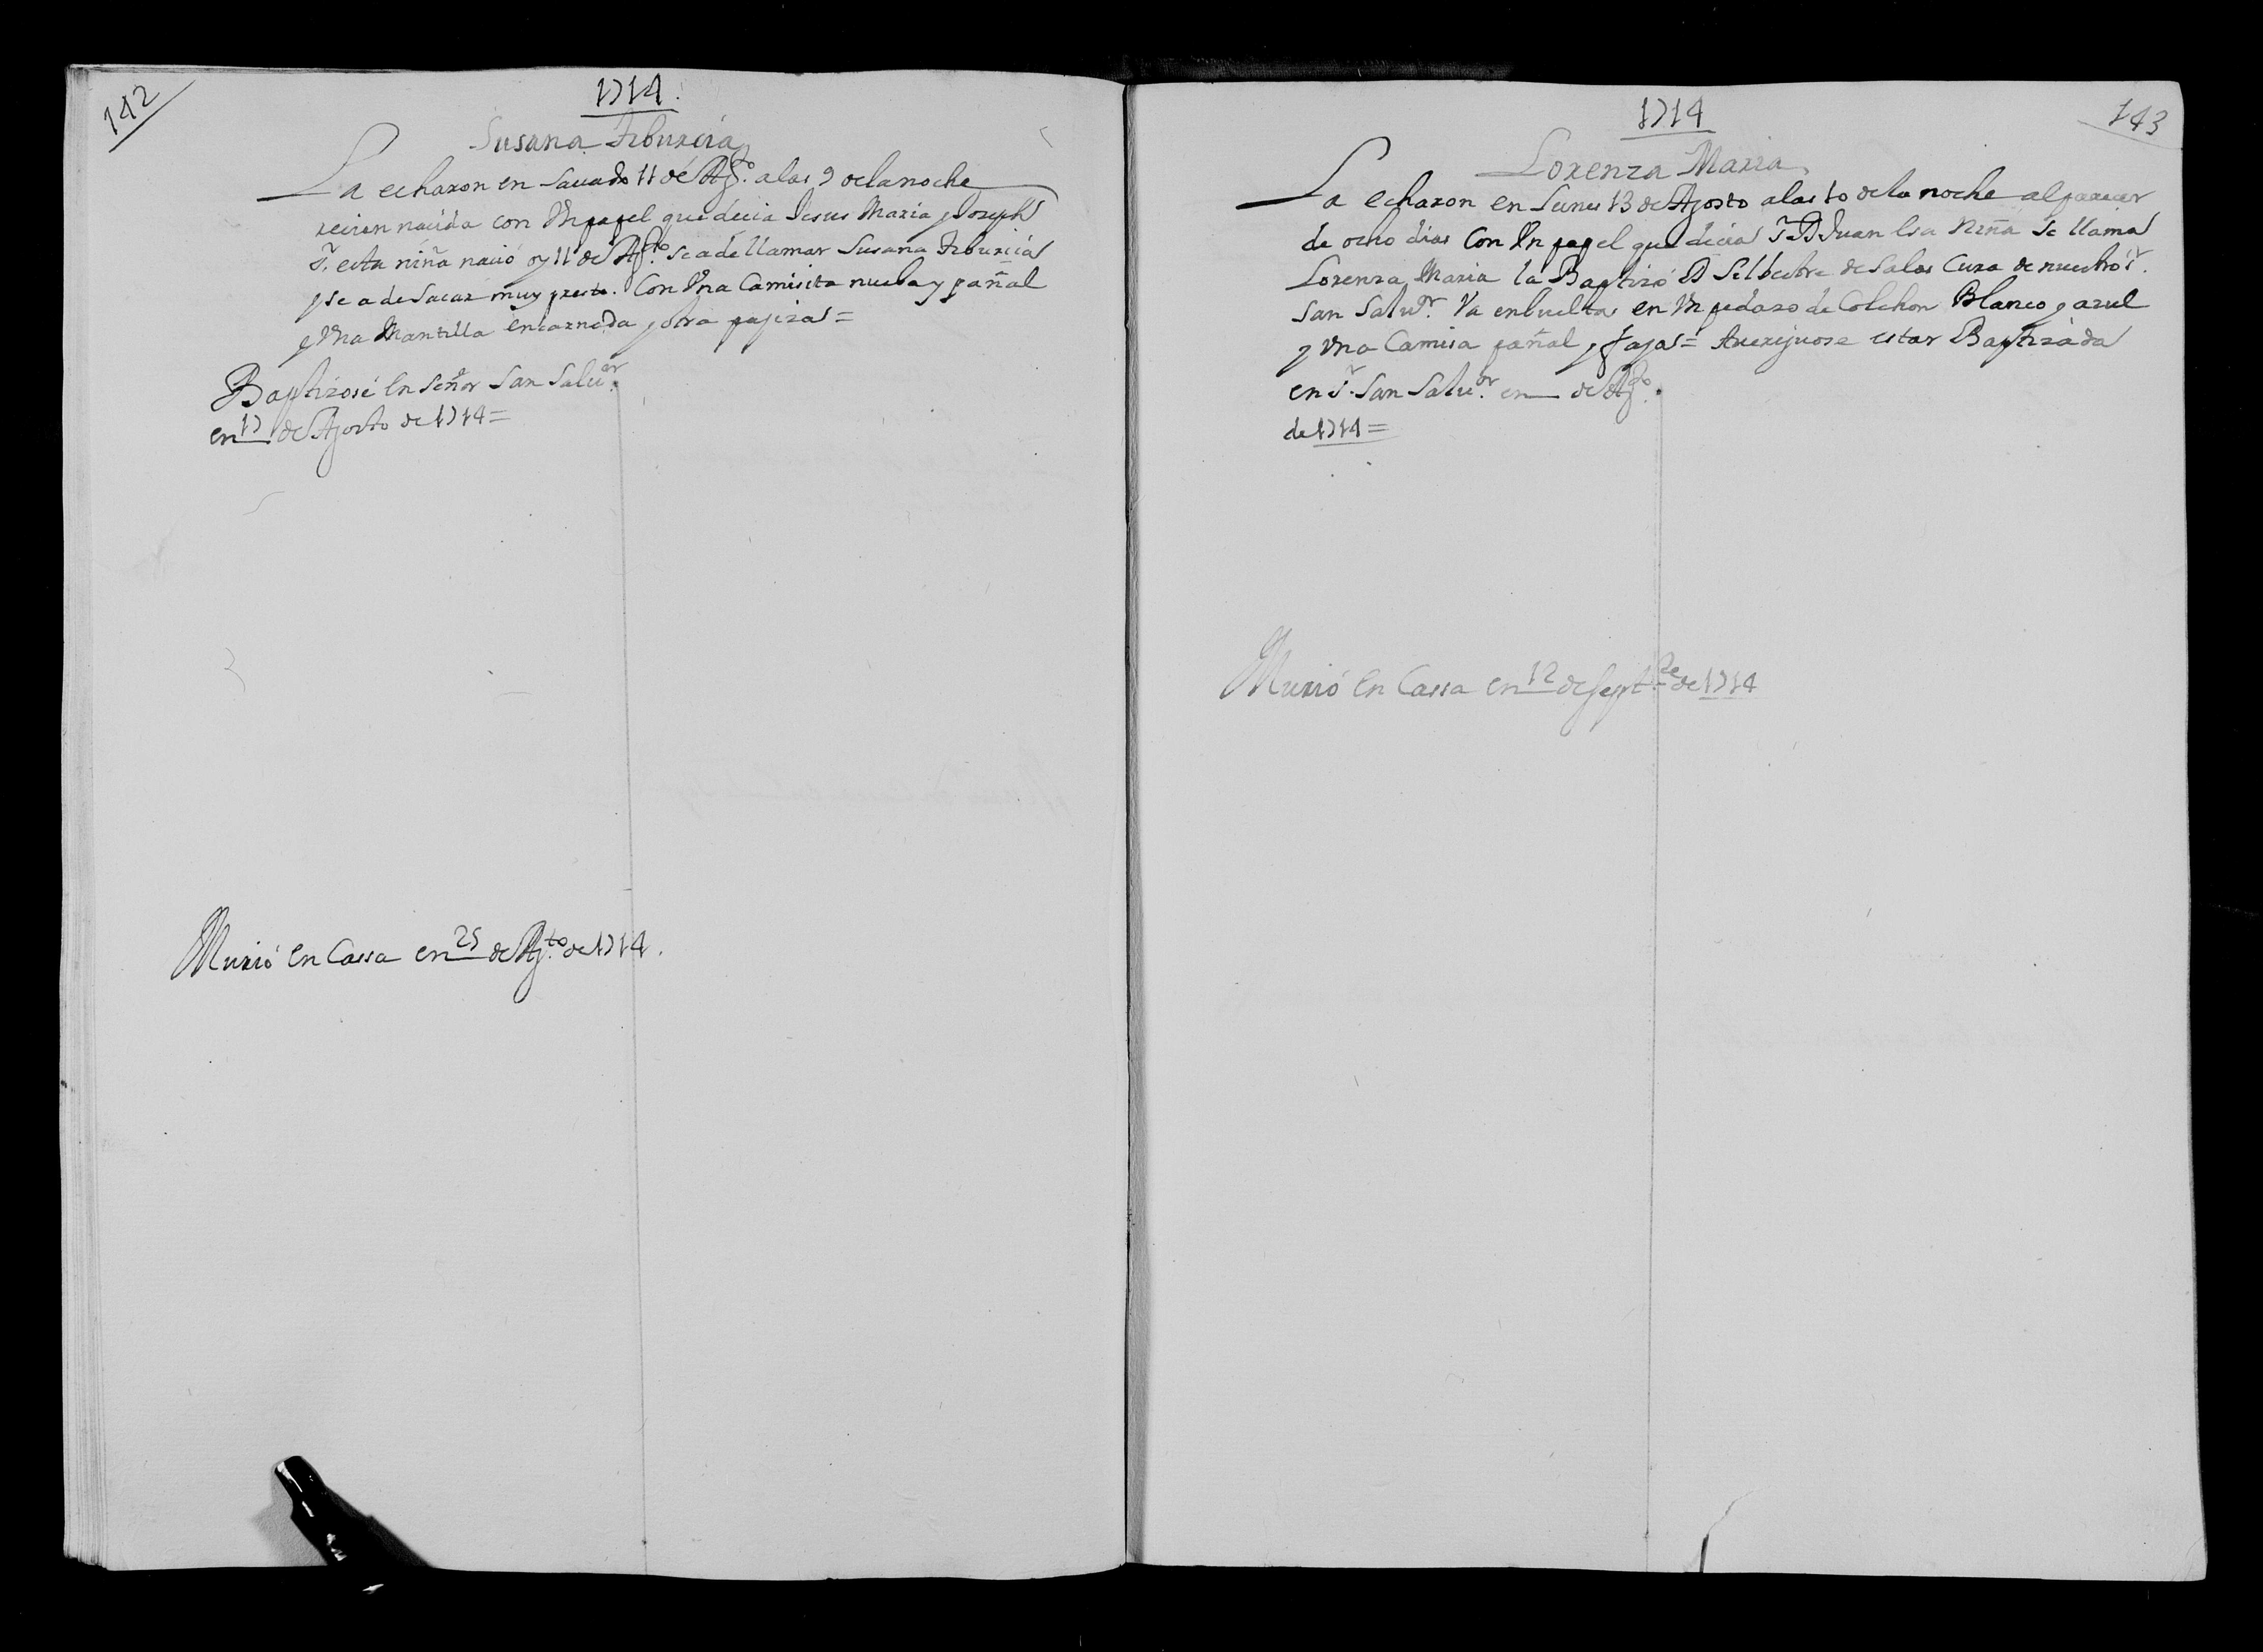 142
1714.
Susana Tiburcia
La echaron en Sauado 11 de Agto. a las 9 de la noche
recien nacida con Vn papel que decia Jesus Maria y Joseph
esta niña nació oy 11 de Agto. se a de llamar Susana Tiburcia
y se a de sacar muy presto. Con Vna Camisita nueba y pañal
y Vna Mantilla encarnada y otra pajiza =
Baptizose en Señor San Saluor.
en 17 de Agosto de 1714 =
Murió en Cassa en 25 de Agto. de 1714.
1714
143
Lorenza Maria
La echaron en Lunes 13 de Agosto a las 10 de la noche al parecer
de ocho dias Con Vn papel que decia Juan esa Niña se llama
Lorenza Maria la Baptizó D Selbestre de Salas Cura de nuestro Sr.
San Saluor. Va enbuelta en Vn pedazo de Colchon Blanco y azul
y Vna Camisa pañal y faja = Auerijuose estar Baptizada
en Sr. San Saluor. en de Agto.
de 1714 =
Murió en Cassa en 12 de Septre. de 1714